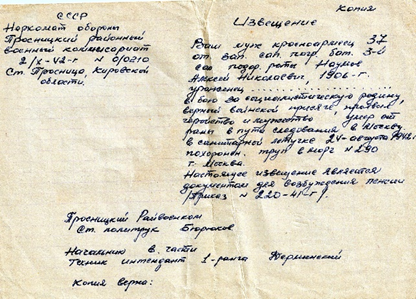 Копия
СССР
Наркомат обороны
Просницкий Районный
военный комиссариат
2/X-42-г N 0/0210
Ст. Просница, Кировской
области.
Извещение
Ваш муж красноармеец 37
от. зап. сап. погр. бат. 3-й
роты Наумов
Алексей Николаевич, 1906-г.
уроженец
в бою за социалистическую родину,
верный воинской присяге, проявив,
геройство и мужество, умер от
ран в пути следования в Москву
в санитарной летучке 24-августа 1942г.
похоронен. труп в морг N 290
г. Москва.
Настоящее извещение является
документом для возбуждения пенсии
/Приказ N 220-41-г/
Просницкий Райвоенком
Ст. политрук Бюрюков
Начальник в. части
Техник интендант 1-ранга
Копия верно: